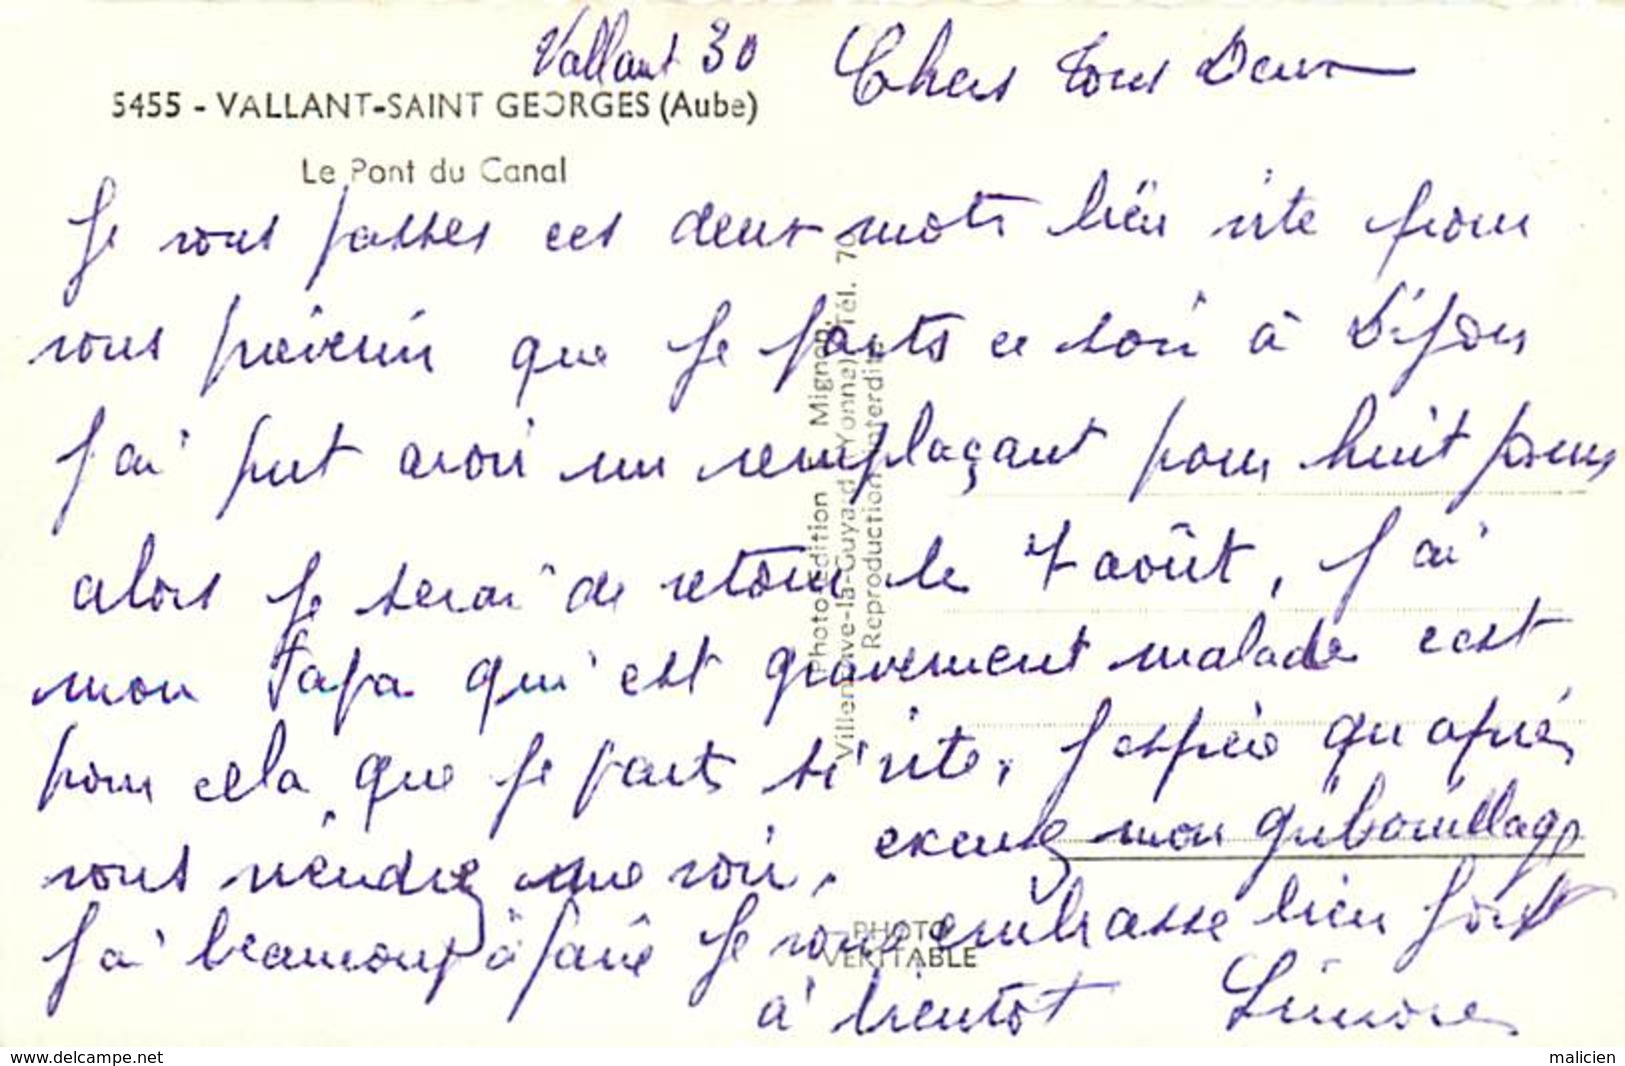 Vallant 30
Chers tous Deux
5455 - VALLANT-SAINT GEORGES (Aube)
Le Pont du Canal
Je vous passes ces deux mots bien vite pour
vous prévenir que je parts ce soir à Dijon
j'ai put avoir un remplaçant pour huit jours
alors je serai de retour le 7 août, j'ai
mon Papa qui est gravement malade cest
pour cela que je parts si vite, jespère qu'après
vous viendrez me voir, excusez mon gribouillage
j'ai beaucoup à faire je vous embrasse bien fort
à bientôt Simone
Photo-édition Mignon,
Villeneuve-la-Guyard (Yonne) Tél. 70
Reproduction interdite
PHOTO
VERITABLE
www.delcampe.net
malicien